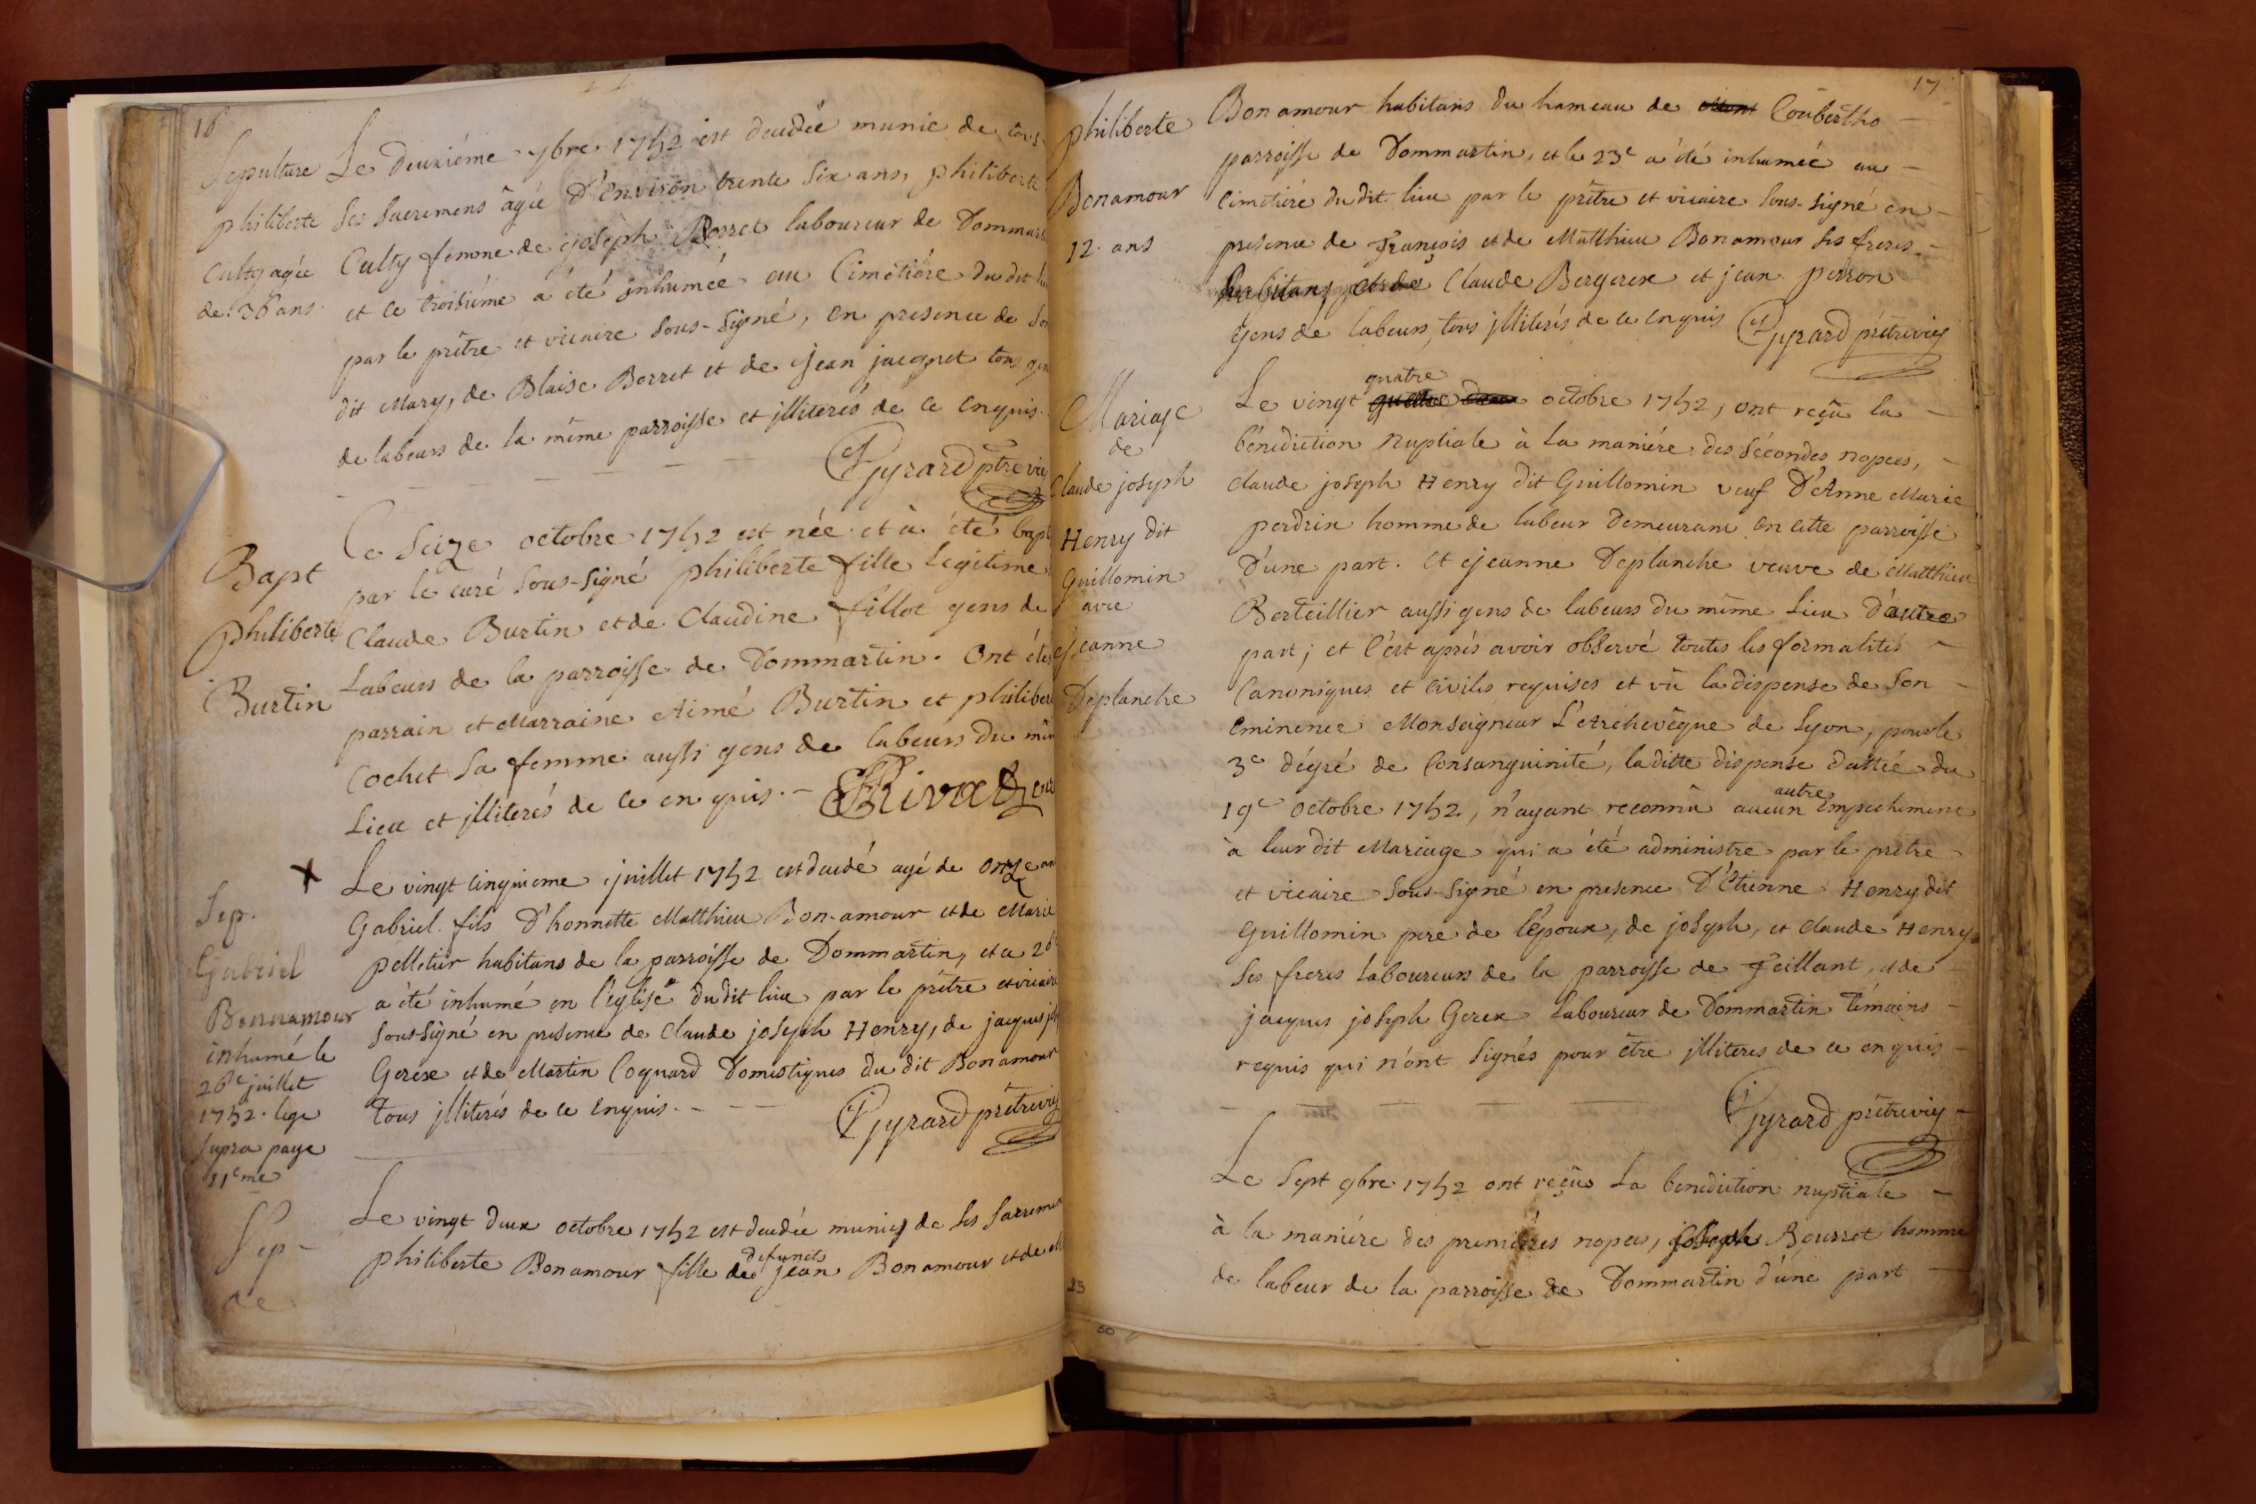 16
Sepulture
philiberte
Culty agée
de 36 ans
Le deuxiéme 9bre 1752 est decedée munie de tous
ses sacremens âgée D'environ trente six ans, philiberte
Culty femme de joseph Borret laboureur de Dommar
et ce troisiéme a été inhumée au Cimetiére du dit
par le prêtre et vicaire sous-signé, en presence de son
dit Mary, de Blaise Borret et de jean jacquet tous gen
de labeurs de la même parroisse et illiterés de ce enquis.
Gyrard ptre vic
Bapt
philiberte
Burtin
Le seize octobre 1752 est née et à été bapt
par le curé sous-signé philiberte fille legitime
Claude Burtin et de Claudine fillot gens de
Labeurs de la parroisse de Dommartin. Ont été
parrain et Marraine Aimé Burtin et philiber
Cochet sa femme aussi gens de labeurs du mê
Lieu et jlliterés de ce en quis. Rivat
Sep.
Gabriel
Bonnamour
inhumé le
26e juillet
1752. lege
supra page
11eme
x Le vingt cinquieme juillet 1752 est decedé agé de onze an
Gabriel fils D'honnette Matthieu Bon-amour et de Marie
pelletier habitans de la parroisse de Dommartin, et a 26
a été inhumé en l'eglise du dit lieu par le prêtre et vicaire
Sous-signé en presence de Claude joseph Henry, de jacques
Gerex et de Martin Coquard Domestiques du dit Bonamour
tous jlliterés de ce enquis.
Gyrard prêtre vic
Sep
de
Le vingt deux octobre 1752 est decedée munie de ses sacremen
defunct
philiberte Bonamour fille de jean Bonamour et de
17
philiberte
Bonamour
12 ans
Bonamour habitans du hameau de Coubertho
parroisse de Dommartin, et le 23e a été inhumée au
Cimetiére du dit lieu par le prêtre et vicaire sous-signé en
presence de François et de Matthieu Bonamour ses freres
habitans et de Claude Bergerex et jean perron
gens de labeurs, tous jlliterés de ce enquis Gyrard prêtre vic
Mariage
de
Claude joseph
Henry dit
Guillomin
avec
Jeanne
Deplanche
quatre
Le vingt octobre 1752, ont reçu la
bénédiction nuptiale à la maniére des sécondes nopces,
Claude joseph Henry dit Guillomin veuf D'Anne Marie
perdrix homme de labeur demeurant en cette parroisse
D'une part. Et jeanne Deplanche veuve de Matthieu
Berteillier aussi gens de labeurs du même Lieu D'autre
part; et c'est aprés avoir observé toutes les formalités
Canoniques et Civiles requises et vû la dispense de Son
Eminence Monseigneur L'Archevêque de Lyon, pour le
3e dégré de Consanguinité, laditte dispense dattée du
autre
19e octobre 1752, n'ayant reconnu aucun Empechement
à leur dit Mariage qui a été administre par le prêtre
et vicaire sous-signé en presence D'Etienne Henry dit
Guillomin pere de l'époux, de joseph, et Claude Henry
Ses freres Laboureurs de la parroisse de Feillant, et de
jacques joseph Gerex Laboureur de Dommartin témoins
requis qui n'ont signés pour être jlliteres de ce enquis
Gyrard prêtre vic
Le sept 9bre 1752 ont reçus la benediction nuptiale
à la maniére des premiéres nopces, joseph Bourret homme
de labeur de la parroisse de Dommartin d'une part
23
60